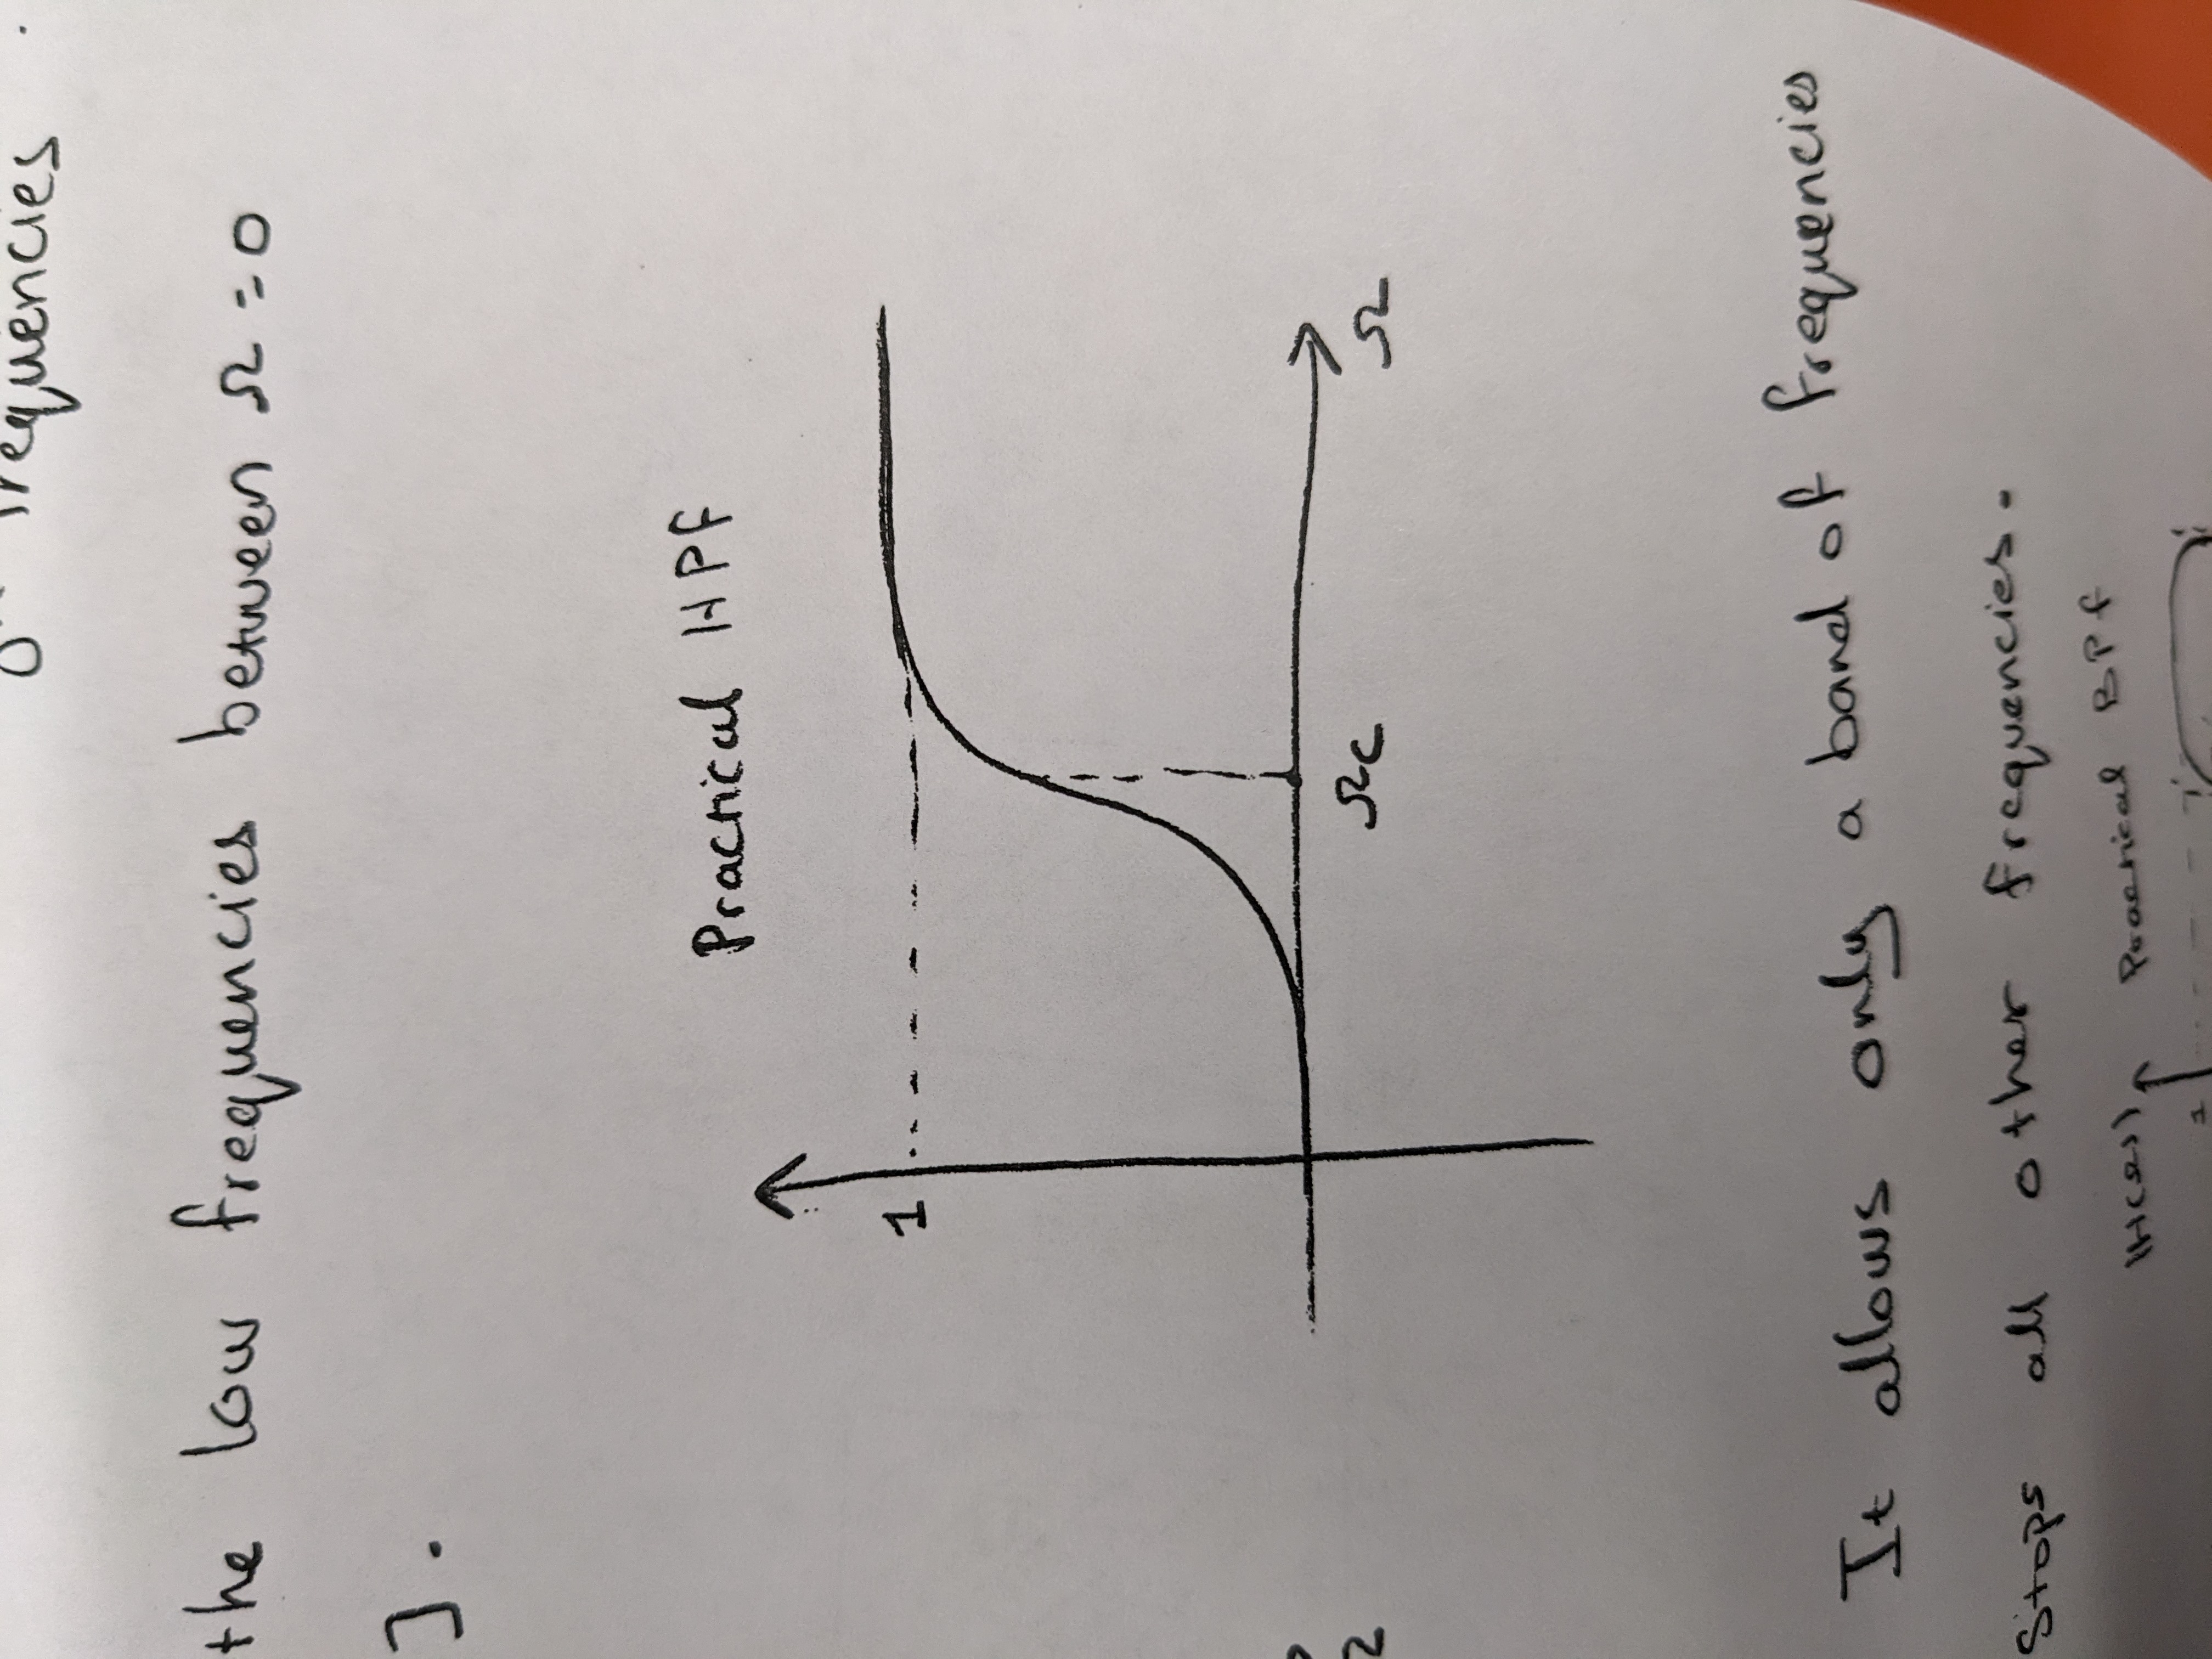 frequencies
the low frequencies between Ω = 0
].
Practical HPF
1
Ωc
Ω
It allows only a band of frequencies
Stops all other frequencies.
|H(Ω)| Practical BPF
1